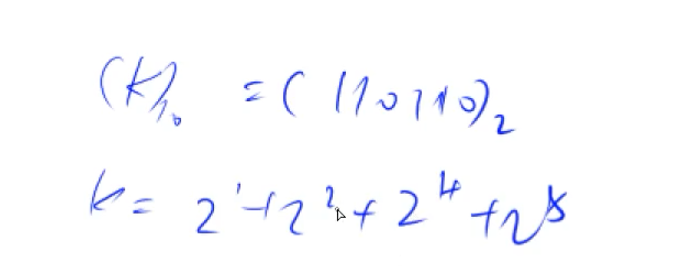 (k)₁₀ = (110110)₂
k = 2¹+2²+2⁴+2⁵